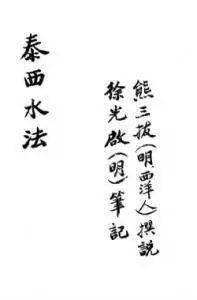 熊三拔(明.西洋人)撰說
徐光啟(明)筆記
泰西水法